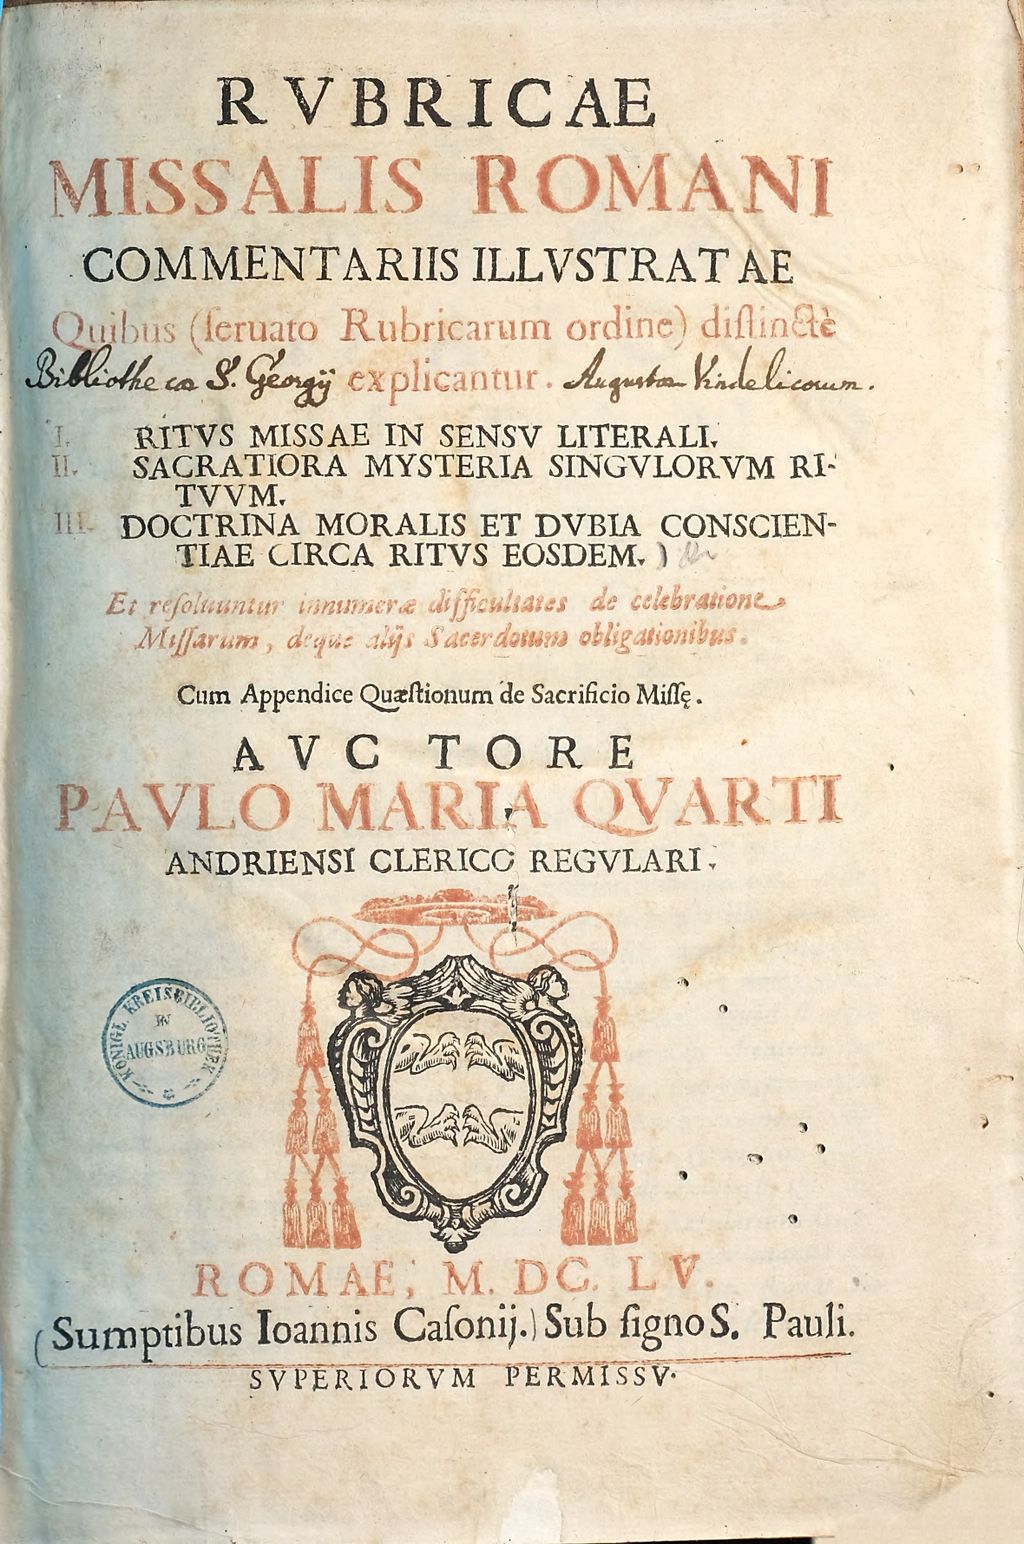 RVBRICAE
MISSALIS ROMANI
COMMENTARIIS ILLVSTRATAE
Quibus (ſeruato Rubricarum ordine) diſtinctè
Bibliothecæ S. Georgÿ explicantur. Augustæ Vindelicorum.
I. RITVS MISSAE IN SENSV LITERALI.
II. SACRATIORA MYSTERIA SINGVLORVM RI-
TVVM.
III. DOCTRINA MORALIS ET DVBIA CONSCIEN-
TIAE CIRCA RITVS EOSDEM.)
Et reſoluuntur innumeræ difficultates de celebratione
Miſſarum, deque alijs Sacerdotum obligationibus.
Cum Appendice Quæſtionum de Sacrificio Miſſę.
AVCTORE
PAVLO MARIA QVARTI
ANDRIENSI CLERICO REGVLARI.
KÖNIGL. KREISBIBLIOTHEK
IN
AUGSBURG
ROMAE, M. DC. LV.
(Sumptibus Ioannis Caſonij.) Sub ſigno S. Pauli.
SVPERIORVM PERMISSV.